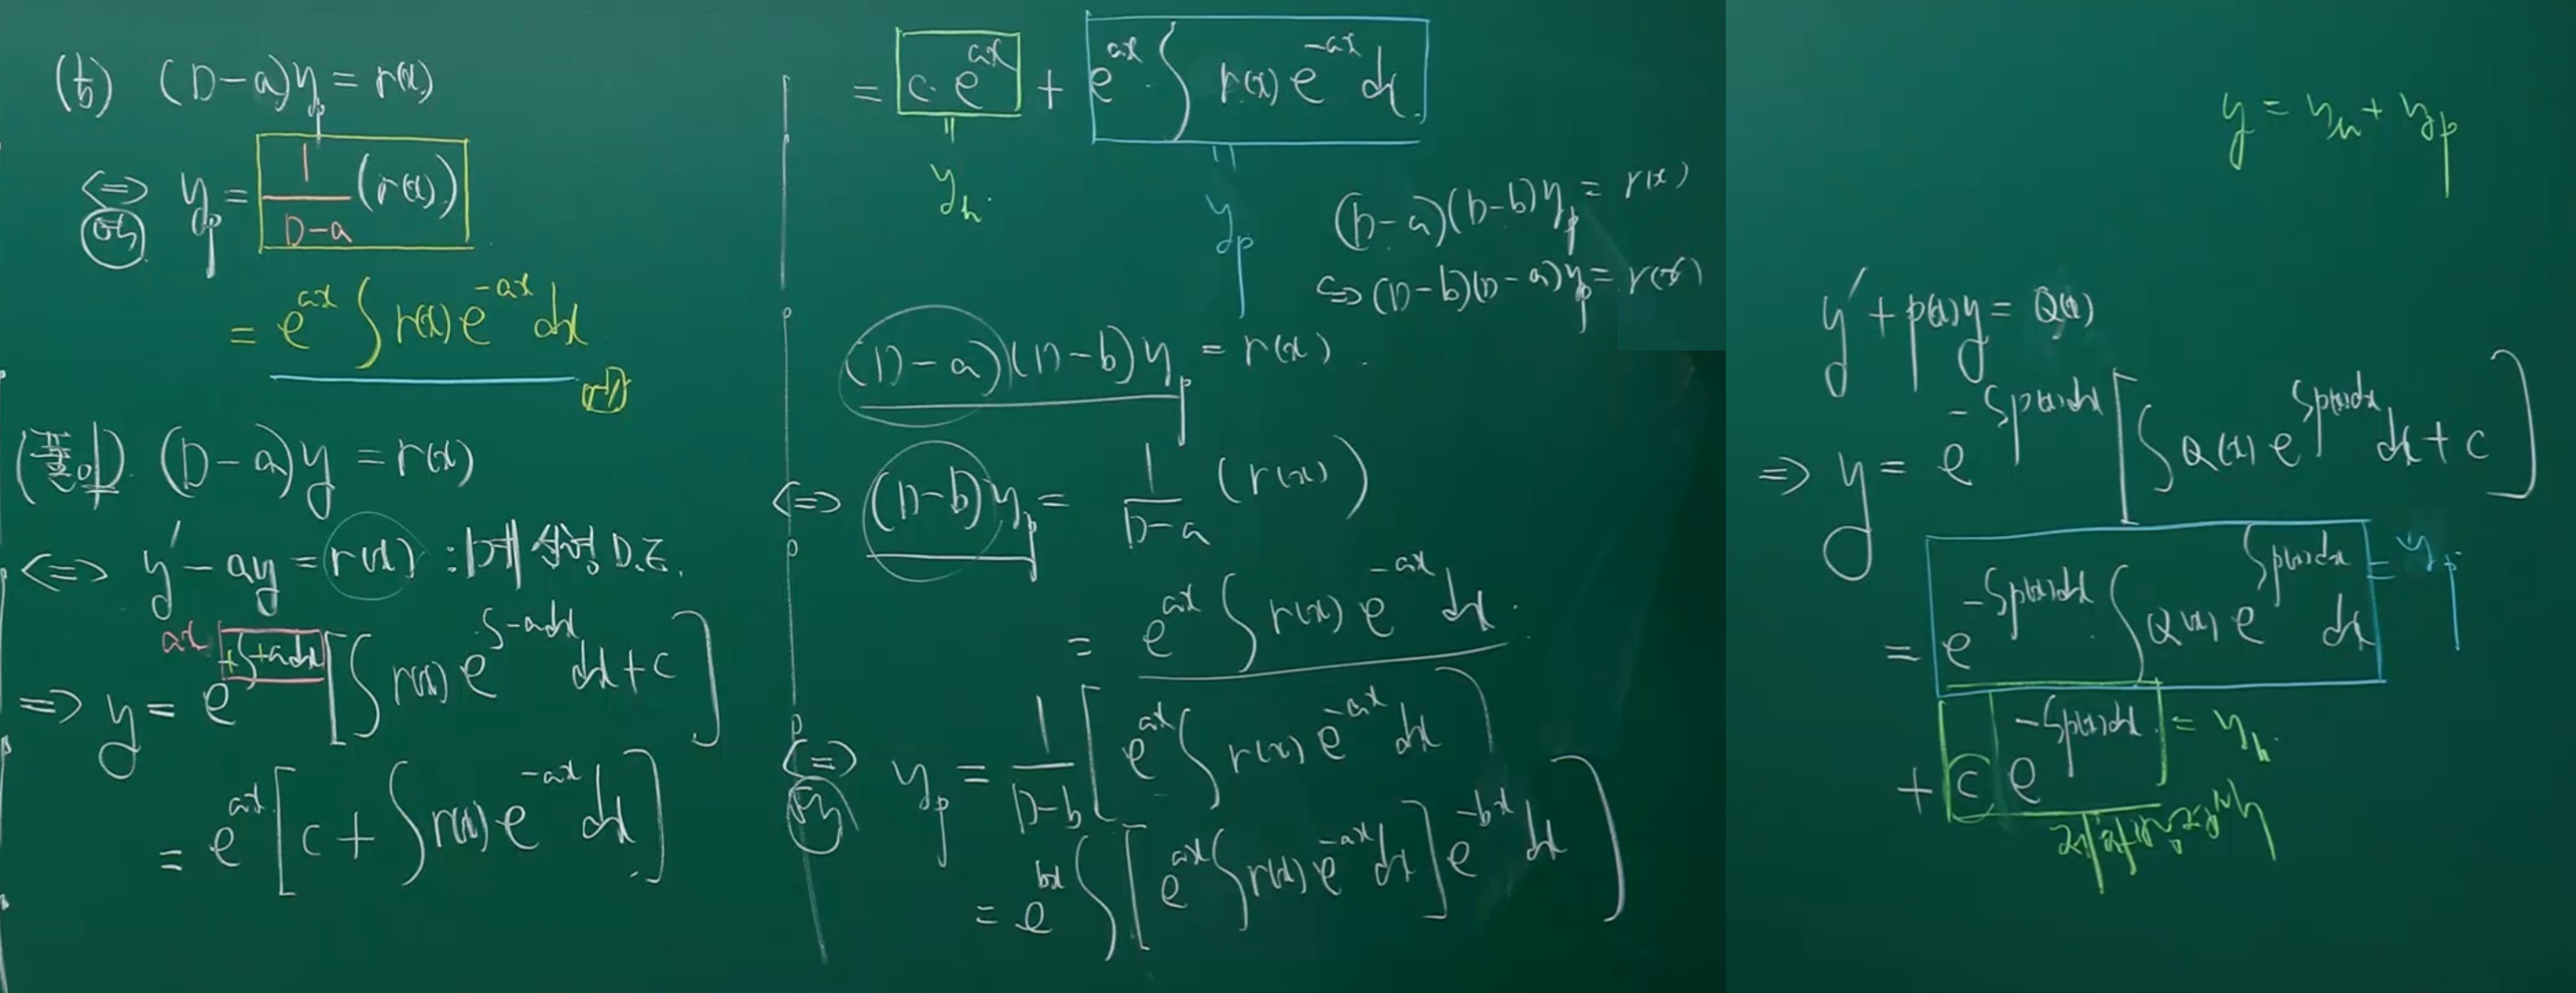 (b) (D-a)y_p = r(x)
⇔ y_p = 1/(D-a) (r(x))
= e^{ax} ∫ r(x) e^{-ax} dx
(풀이) (D-a)y = r(x)
⇔ y' - ay = r(x) : 1계 선형 D.E.
⇒ y = e^{+∫+adx} [∫ r(x) e^{∫-adx} dx + c]
ax
= e^{ax} [c + ∫ r(x) e^{-ax} dx]
= c·e^{ax} + e^{ax} · ∫ r(x) e^{-ax} dx
= y_h.
= y_p
(D-a)(D-b)y_p = r(x)
⇔ (D-b)(D-a)y_p = r(x)
(D-a)(D-b)y_p = r(x).
⇔ (D-b)y_p = 1/(D-a) (r(x))
= e^{ax} ∫ r(x) e^{-ax} dx.
⇔ y_p = 1/(D-b) [e^{ax} ∫ r(x) e^{-ax} dx]
= e^{bx} ∫ [e^{ax} ∫ r(x) e^{-ax} dx] e^{-bx} dx]
y = y_h + y_p
y' + p(x)y = Q(x)
⇒ y = e^{-∫p(x)dx} [∫ Q(x) e^{∫p(x)dx} dx + c]
= e^{-∫p(x)dx} · ∫ Q(x) e^{∫p(x)dx} dx = y_p
+ c e^{-∫p(x)dx} = y_h.